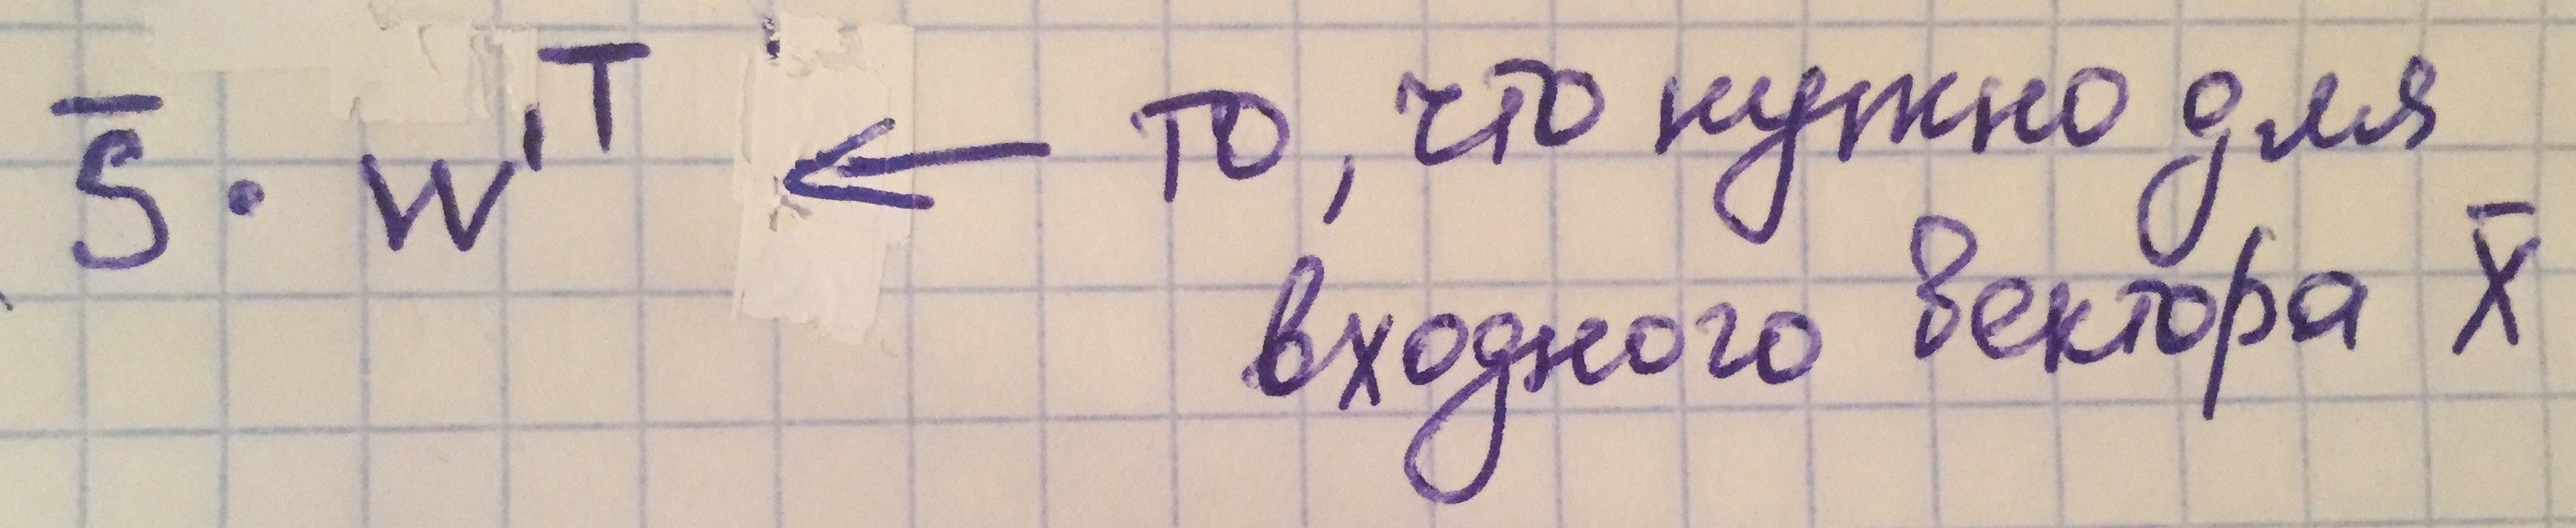 S̄ · W'ᵀ ← то, что нужно для
входного вектора X̄